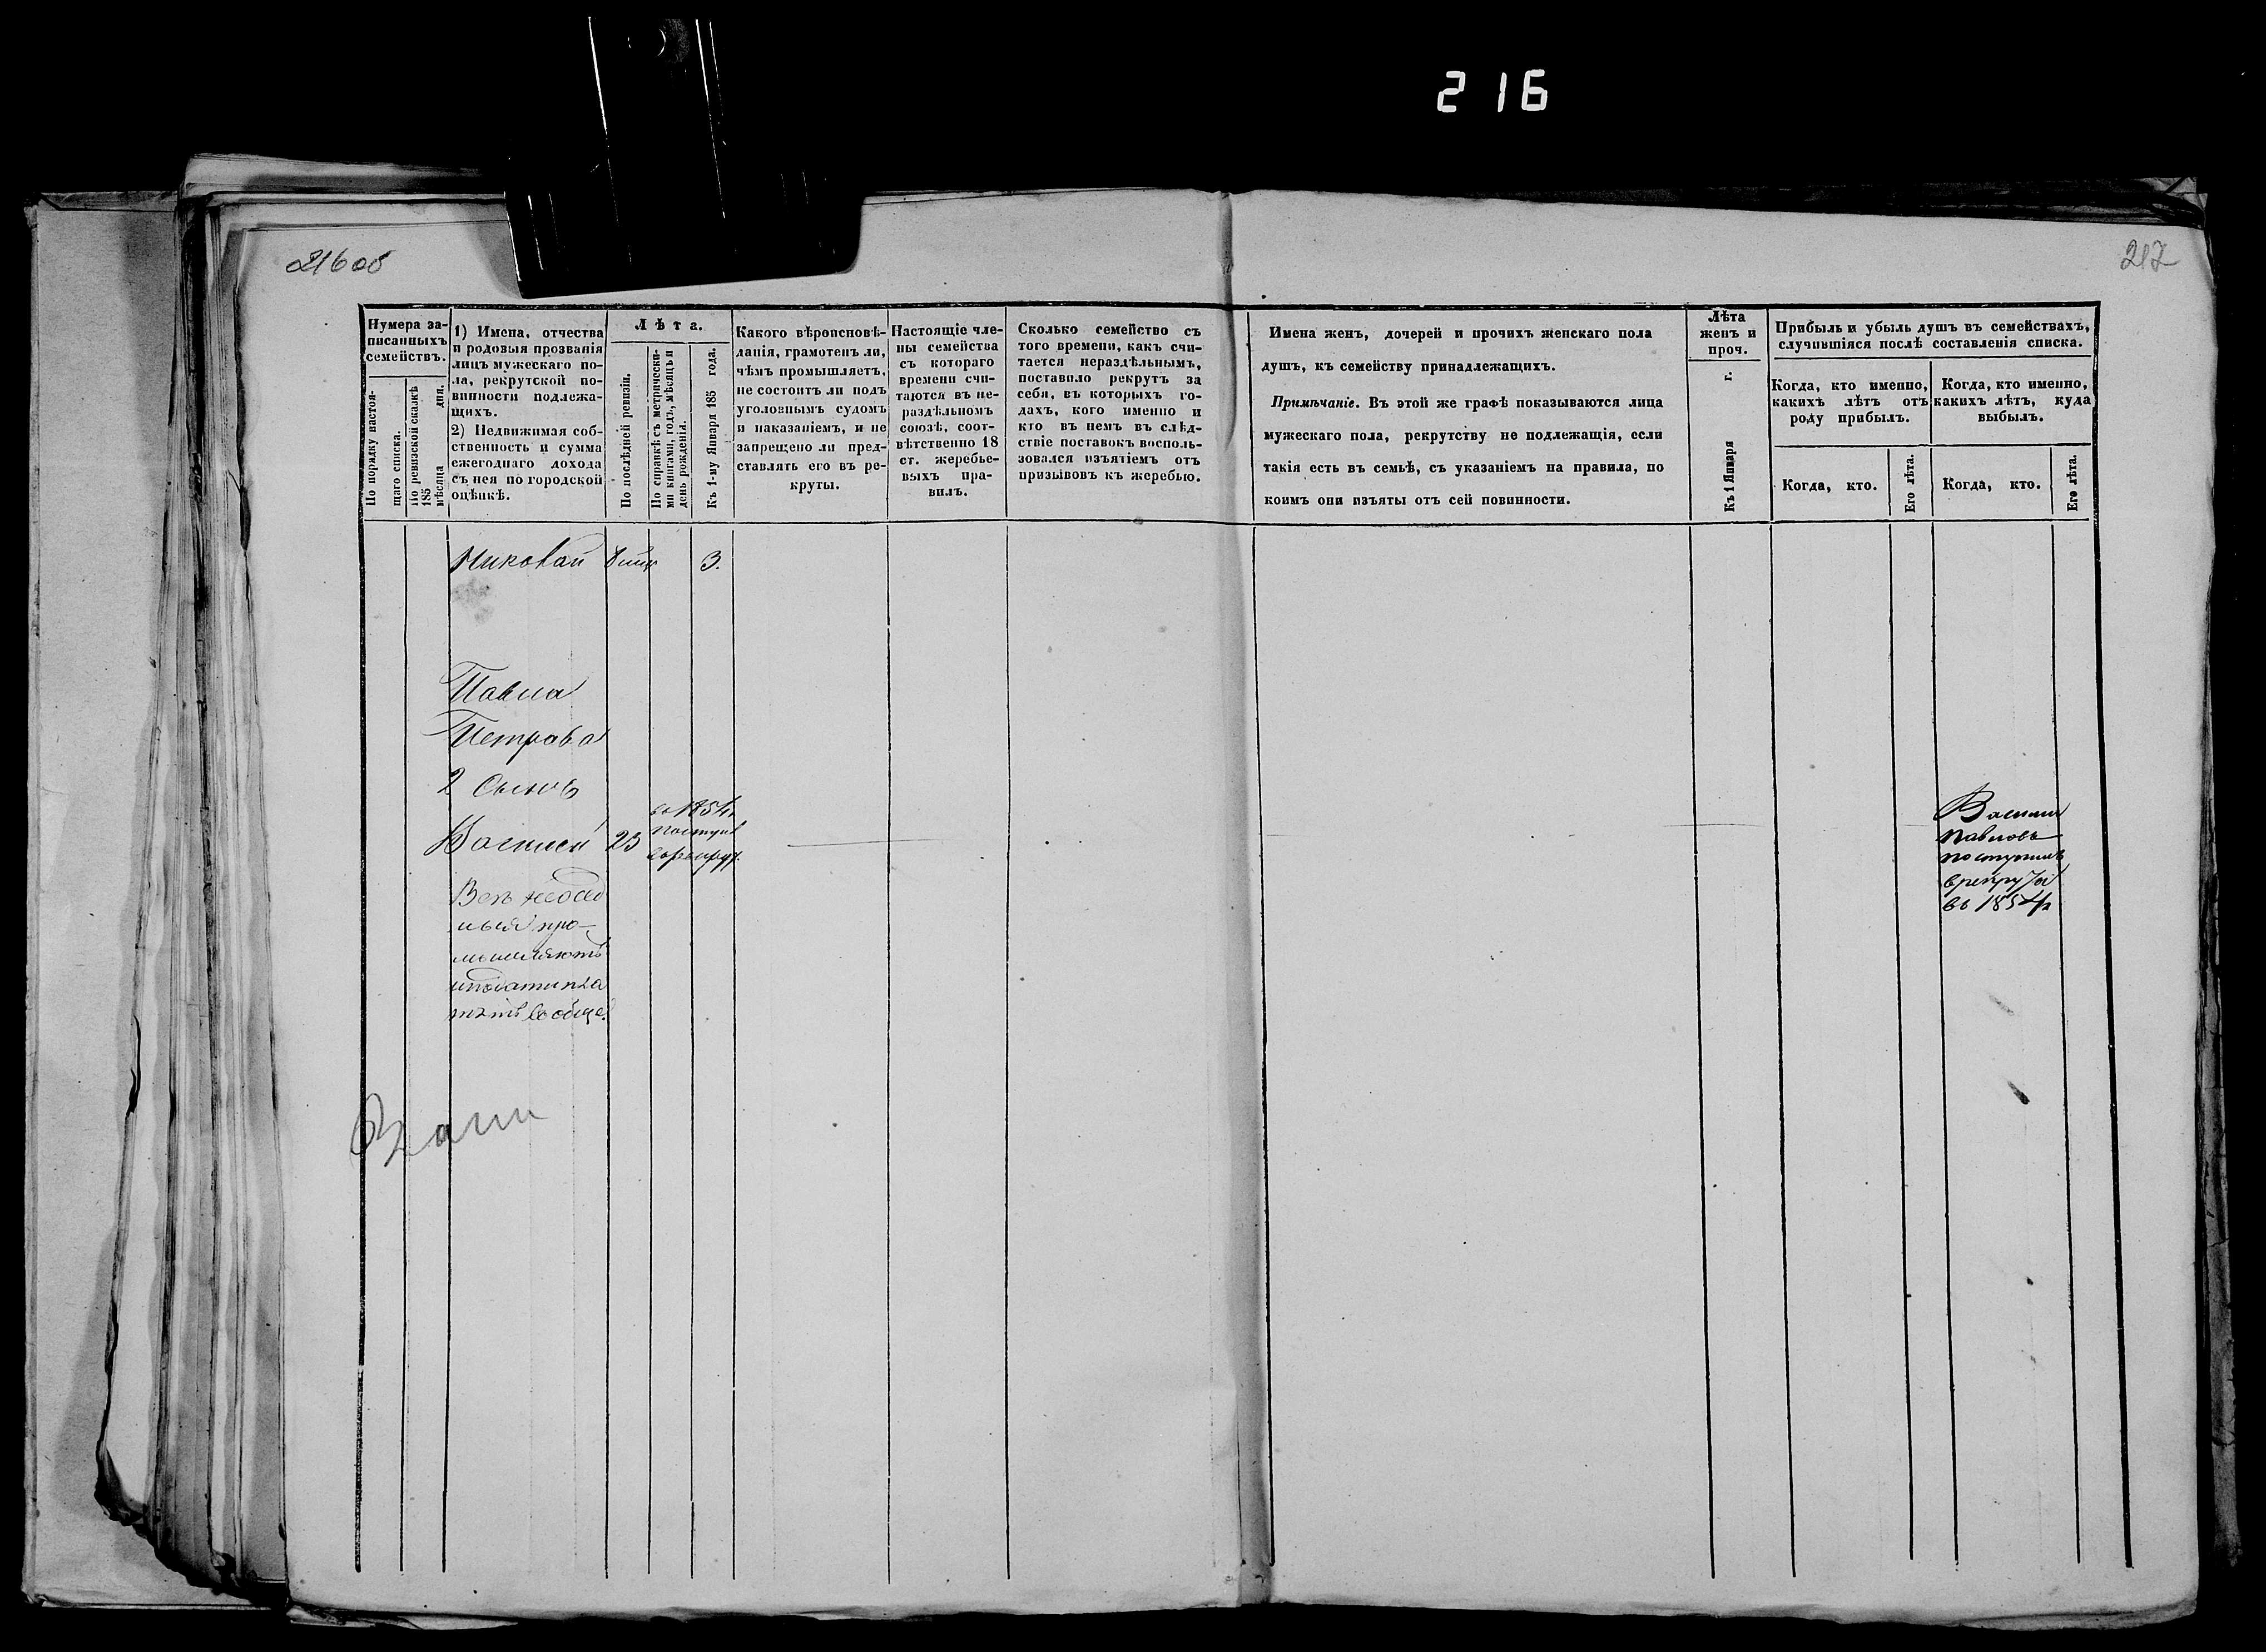 216
216 об
217
Нумера за-
писанныхъ
семействъ.
По порядку настоя-
щаго списка.
По ревизской сказкѣ
185 мѣсяца дня.
1) Имена, отчества
и родовыя прозванія
лицъ мужескаго по-
ла, рекрутской по-
винности подлежа-
щихъ.
2) Недвижимая соб-
ственность и сумма
ежегоднаго дохода
съ нея по городской
оцѣнкѣ.
Лѣта.
По послѣдней ревизіи.
По справкѣ съ метрически-
ми книгами, годъ, мѣсяцъ и
день рожденія.
Къ 1-му Января 185 года.
Какого вѣроисповѣ-
данія, грамотенъ ли,
чѣмъ промышляетъ,
не состоитъ ли подъ
уголовнымъ судомъ
и наказаніемъ, и не
запрещено ли пред-
ставлять его въ ре-
круты.
Настоящіе чле-
ны семейства
съ котораго
времени счи-
таются въ не-
раздѣльномъ
союзѣ, соот-
вѣтственно 18
ст. жеребье-
выхъ пра-
вилъ.
Сколько семейство съ
того времени, какъ счи-
тается нераздѣльнымъ,
поставило рекрутъ за
себя, въ которыхъ го-
дахъ, кого именно и
кто въ немъ въ слѣд-
ствіе поставокъ восполь-
зовался изъятіемъ отъ
призывовъ къ жеребью.
Имена женъ, дочерей и прочихъ женскаго пола
душъ, къ семейству принадлежащихъ.
Примѣчаніе. Въ этой же графѣ показываются лица
мужескаго пола, рекрутству не подлежащія, если
такія есть въ семьѣ, съ указаніемъ на правила, по
коимъ они изъяты отъ сей повинности.
Лѣта
женъ и
проч.
Къ 1 Января г.
Прибыль и убыль душъ въ семействахъ,
случившіяся послѣ составленія списка.
Когда, кто именно,
какихъ лѣтъ отъ
роду прибылъ.
Когда, кто.
Его лѣта.
Когда, кто именно,
какихъ лѣтъ, куда
выбылъ.
Когда, кто.
Его лѣта.
Николай 3.
Павла
Петрова
2 Сынъ
Василей 23
въ 1854
поступ
Всѣ
ныя про-
мышляютъ
иподати пла
тятъ вообще.
Василий
Павловъ
поступилъ
врекрута
въ 1854